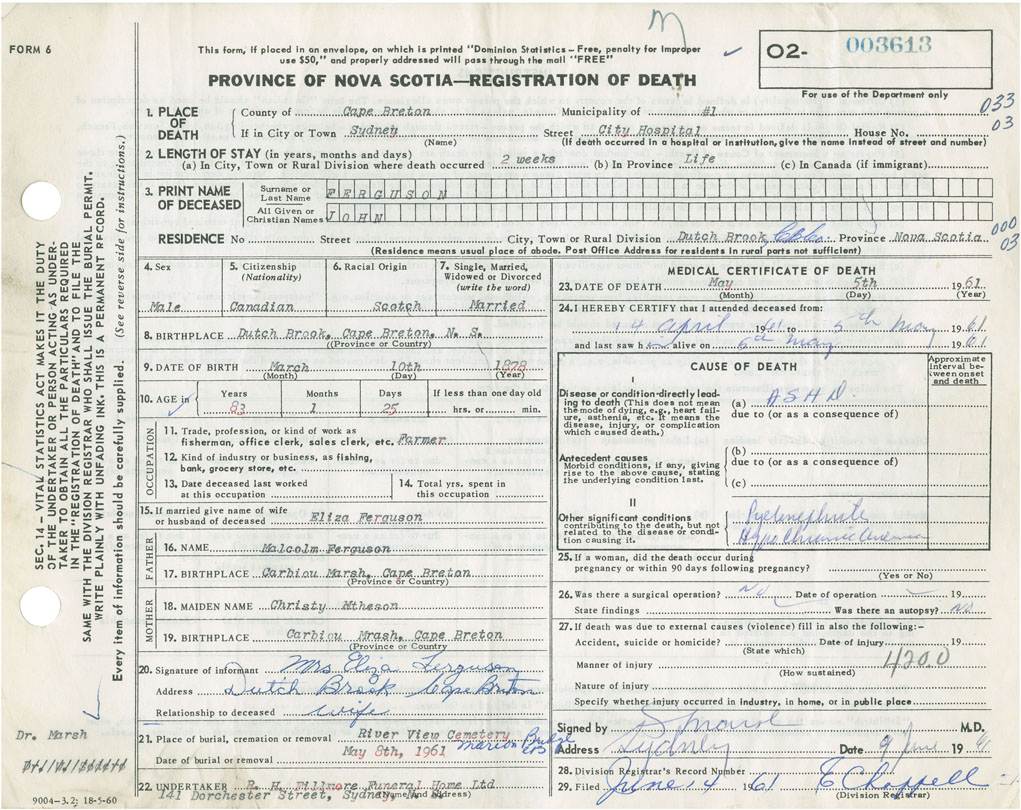 FORM 6
This form, if placed in an envelope, on which is printed "Dominion Statistics – Free, penalty for improper
use $50," and properly addressed will pass through the mail "FREE"
PROVINCE OF NOVA SCOTIA—REGISTRATION OF DEATH
02- 003613
For use of the Department only
033
03
1. PLACE OF DEATH
County of Cape Breton Municipality of #1
If in City or Town Sydney Street City Hospital House No.
(Name) (If death occurred in a hospital or institution, give the name instead of street and number)
2. LENGTH OF STAY (in years, months and days)
(a) In City, Town or Rural Division where death occurred 2 weeks (b) In Province Life (c) In Canada (if immigrant)
3. PRINT NAME OF DECEASED
Surname or Last Name FERGUSON
All Given or Christian Names JOHN
000
03
RESIDENCE No Street City, Town or Rural Division Dutch Brook, Province Nova Scotia
(Residence means usual place of abode. Post Office Address for residents in rural parts not sufficient)
4. Sex
Male
5. Citizenship
(Nationality)
Canadian
6. Racial Origin
Scotch
7. Single, Married,
Widowed or Divorced
(write the word)
Married
8. BIRTHPLACE Dutch Brook, Cape Breton, N. S.
(Province or Country)
9. DATE OF BIRTH March 10th 1878
(Month) (Day) (Year)
10. AGE in
Years Months Days If less than one day old
83 1 25 hrs. or min.
OCCUPATION
11. Trade, profession, or kind of work as
fisherman, office clerk, sales clerk, etc. Farmer
12. Kind of industry or business, as fishing,
bank, grocery store, etc.
13. Date deceased last worked
at this occupation
14. Total yrs. spent in
this occupation
15. If married give name of wife
or husband of deceased Eliza Ferguson
FATHER
16. NAME Malcolm Ferguson
17. BIRTHPLACE Carbiou Marsh, Cape Breton
(Province or Country)
MOTHER
18. MAIDEN NAME Christy Mtheson
19. BIRTHPLACE Carbiou Mrash, Cape Breton
(Province or Country
20. Signature of informant Mrs Eliza Ferguson
Address Dutch Brook Cape Breton
Relationship to deceased wife
21. Place of burial, cremation or removal River View Cemetery
Marion Bridge
Date of burial or removal May 8th, 1961
22. UNDERTAKER R. H. Fillmore Funeral Home Ltd
141 Dorchester Street, Sydney, N. S.
(Name and Address)
MEDICAL CERTIFICATE OF DEATH
23. DATE OF DEATH May 5th 1961
(Month) (Day) (Year)
24. I HEREBY CERTIFY that I attended deceased from:
14 April 1961 to 5th May 1961
and last saw him alive on 5th May 1961
CAUSE OF DEATH
Approximate
interval be-
tween onset
and death
I
Disease or condition directly lead-
ing to death (This does not mean
the mode of dying, e.g., heart fail-
ure, asthenia, etc. It means the
disease, injury, or complication
which caused death.)
(a) ASHD
due to (or as a consequence of)
Antecedent causes
Morbid conditions, if any, giving
rise to the above cause, stating
the underlying condition last.
(b)
due to (or as a consequence of)
(c)
II
Other significant conditions
contributing to the death, but not
related to the disease or condi-
tion causing it.
Pyelonephritis
Hypochromic anemia
25. If a woman, did the death occur during
pregnancy or within 90 days following pregnancy?
(Yes or No)
26. Was there a surgical operation? No Date of operation 19
State findings Was there an autopsy? No
27. If death was due to external causes (violence) fill in also the following:–
Accident, suicide or homicide? Date of injury 19
(State which)
4200
Manner of injury
(How sustained)
Nature of injury
Specify whether injury occurred in industry, in home, or in public place
Signed by D Marsh M.D.
Address Sydney Date 9 June 1961
28. Division Registrar's Record Number
29. Filed June 14 1961 E Chappell
(Division Registrar)
SEC. 14 – VITAL STATISTICS ACT MAKES IT THE DUTY
OF THE UNDERTAKER OR PERSON ACTING AS UNDER-
TAKER TO OBTAIN ALL THE PARTICULARS REQUIRED
IN THE "REGISTRATION OF DEATH" AND TO FILE THE
SAME WITH THE DIVISION REGISTRAR WHO SHALL ISSUE THE BURIAL PERMIT.
WRITE PLAINLY WITH UNFADING INK. THIS IS A PERMANENT RECORD.
Every item of information should be carefully supplied. (See reverse side for instructions.)
Dr. Marsh
9004–3.2; 18-5-60